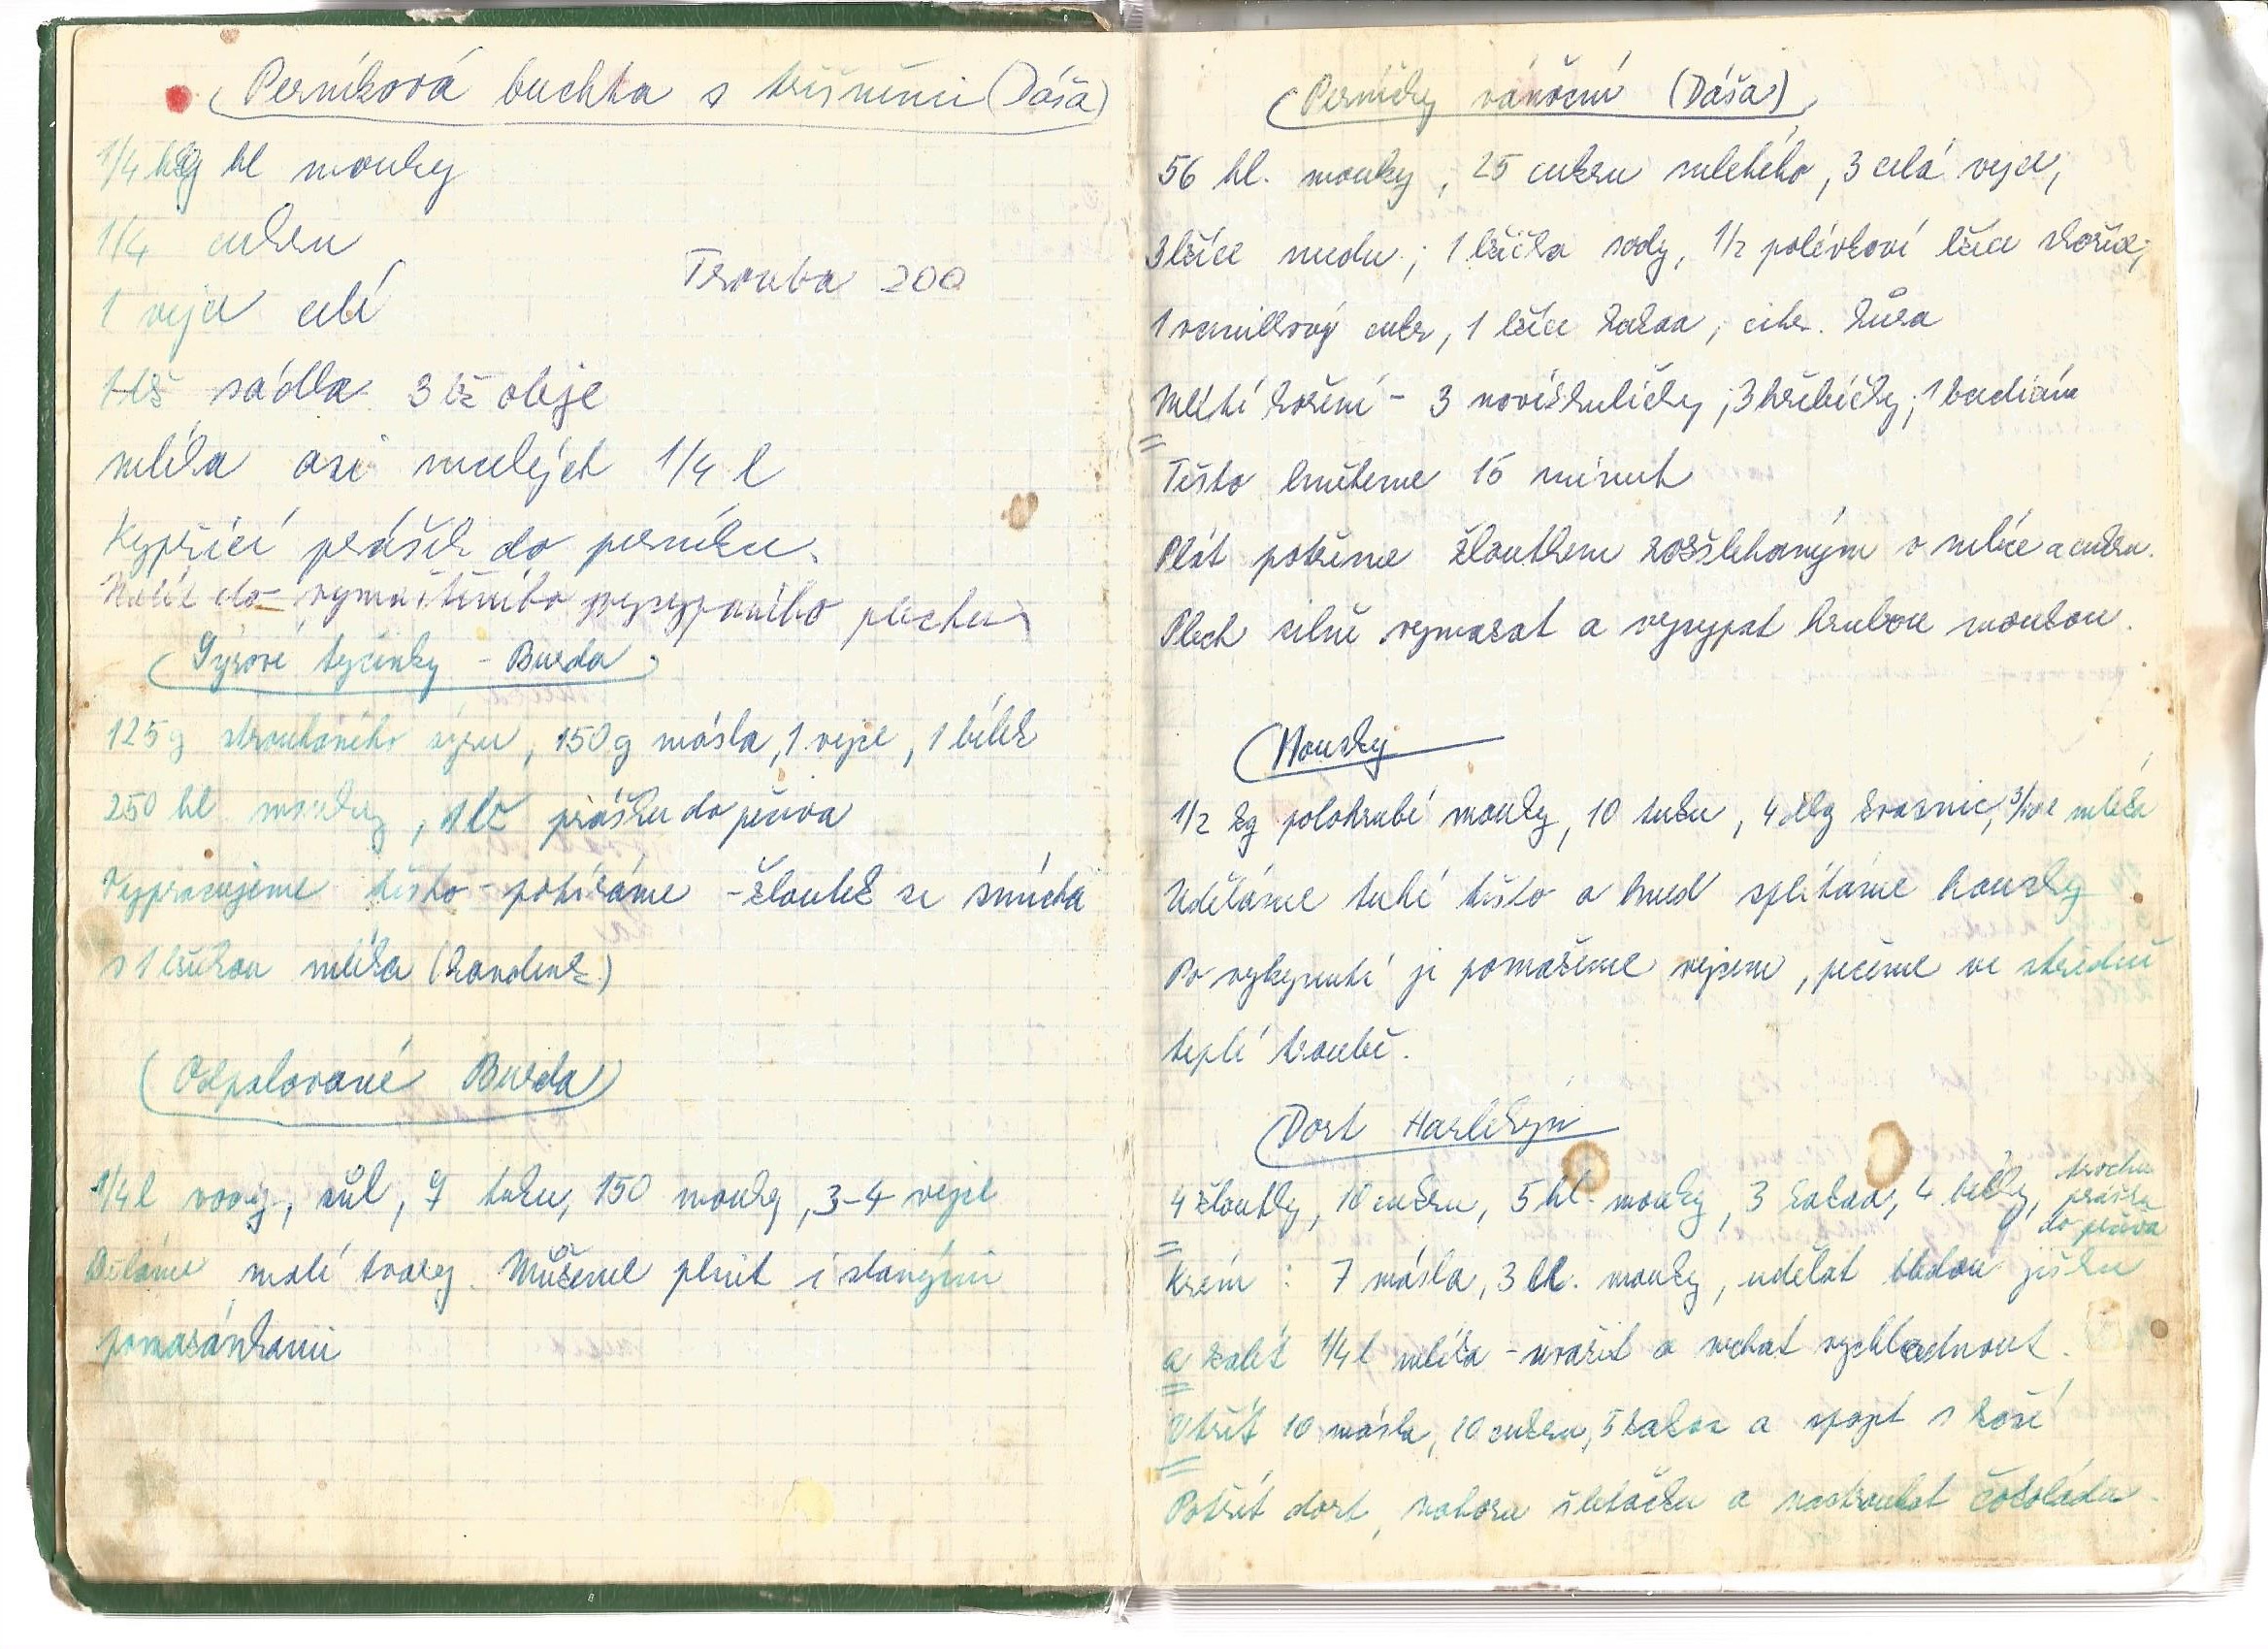 Perníková buchta s třešněmi (Dáša)
1/4 kg hl mouky
1/4 cukru
Trouba 200
1 vejce celé
1 lž sádla 3 lž oleje
mléka asi malých 1/4 l
Kypřící prášek do perníku.
Nalít do vymaštěného vysypaného plechu
Sýrové tyčinky - Burda
125 g strouhaného sýru, 150 g másla, 1 vejce, 1 bílek
250 hl mouky, 1 lž prášku do pečiva
Vypracujeme těsto - potíráme - žloutek se smíchá
s 1 lžičkou mléka (
Odpalované Burda
1/4 l vody, sůl, 9 tuku, 150 mouky, 3-4 vejce
Děláme malé tvary. Můžeme plnit i slanými
pomazánkami
Perníčky vánoční (Dáša)
56 hl. mouky, 25 cukru mletého, 3 celá vejce,
3 lžíce medu; 1 lžička sody, 1/2 polévkové lžíce skořice;
1 vanilkový cukr, 1 lžíce kakaa, citr. kůra
Mleté koření - 3 nové kuličky; 3 hřebíčky; 1 badián
Těsto hněteme 15 minut
Plát potřeme žloutkem rozšlehaným v mléce a cukru.
Plech silně vymazat a vysypat hrubou moukou.
Housky
1/2 kg polohrubé mouky, 10 tuku, 4 dkg kvasnic, mléka
Uděláme tuhé těsto a hned splétáme housky
Po vykynutí je pomažeme vejcem, pečeme ve středně
teplé troubě.
Dort Harlekýn
4 žloutky, 10 cukru, 5 hl. mouky, 3 kakaa, 4 bílky, trochu
prášku
do pečiva
Krém: 7 másla, 3 hl. mouky, udělat bledou jíšku
a zalít 1/4 l mléka - uvařit a nechat vychladnout.
Utřít 10 másla, 10 cukru, 5 kakaa a spojit s kaší
Potřít dort, nahoru šlehačku a nastrouhat čokoládu.